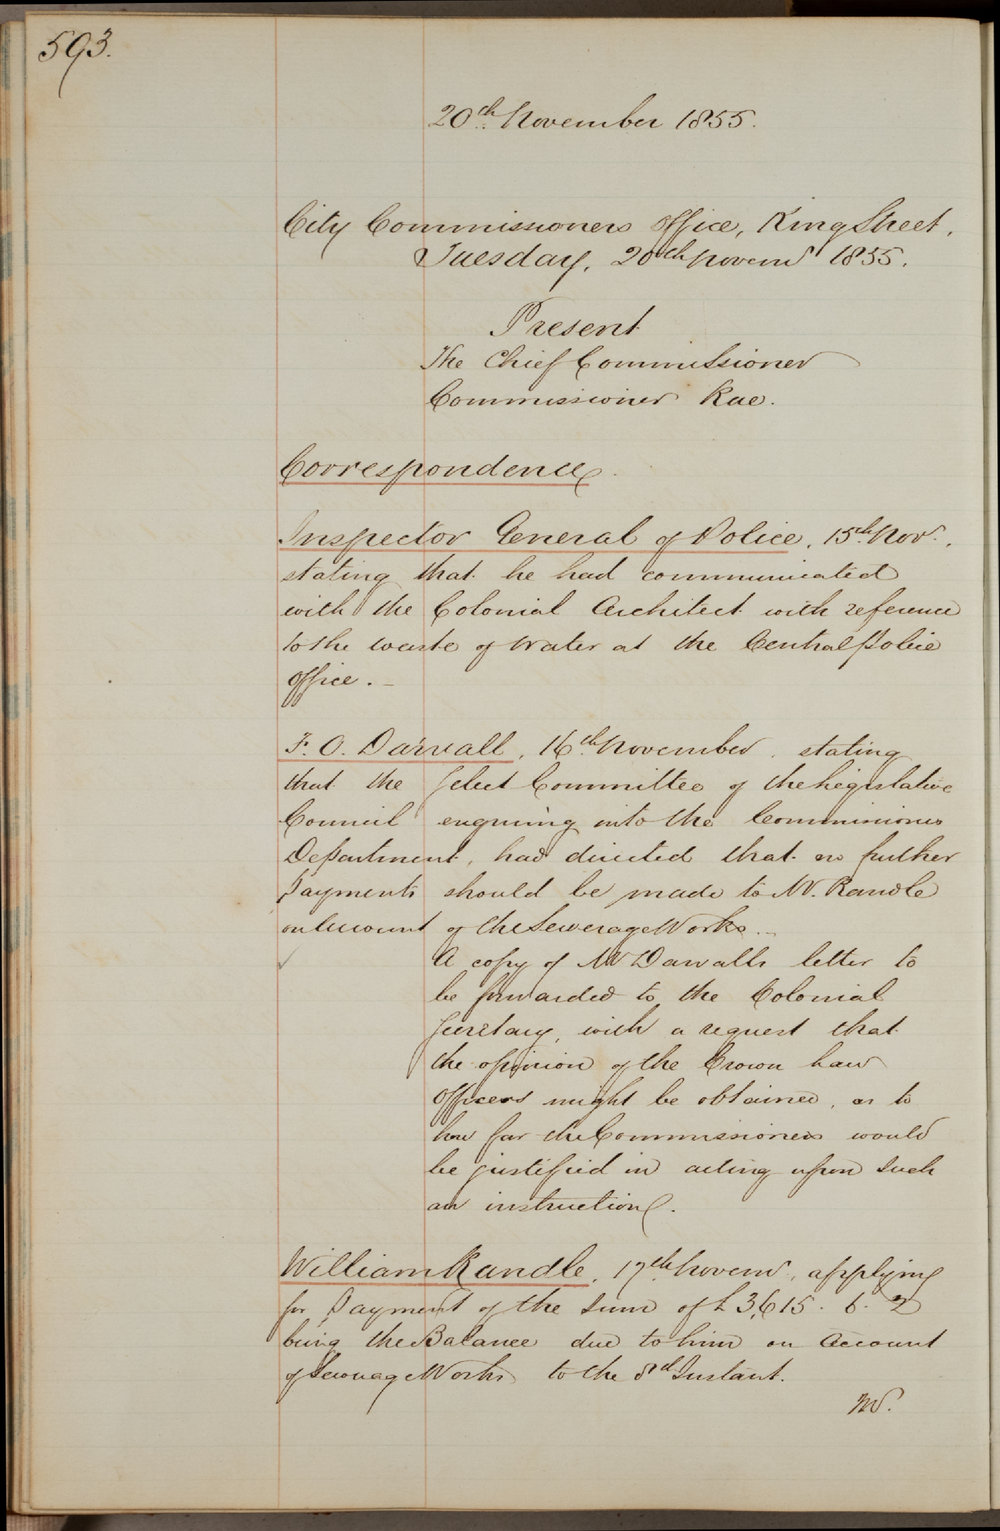 593.
20th November 1855.
City Commissioners Office, King Street,
Tuesday, 20th Novemr 1855.
Present
The Chief Commissioner
Commissioner Rae.
Correspondence.
Inspector General of Police, 15th Novr.,
stating that he had communicated
with the Colonial Architect with reference
to the waste of Water at the Central Police
Office. —
F. O. Darvall, 16th November, stating
that the Select Committee of the Legislative
Council enquiring into the Commissioners
Department, had directed that no further
Payments should be made to Mr. Randle
on Account of the Sewerage Works. —
✓ A copy of Mr Darvalls letter to
be forwarded to the Colonial
Secretary, with a request that
the opinion of the Crown Law
Officers might be obtained, as to
how far the Commissioners would
be justified in acting upon such
an instruction.
William Randle, 17th Novemr, applying
for Payment of the sum of £3,615. 6. 2
being the Balance due to him on Account
of Sewerage Works to the 8th Instant.
Mr.